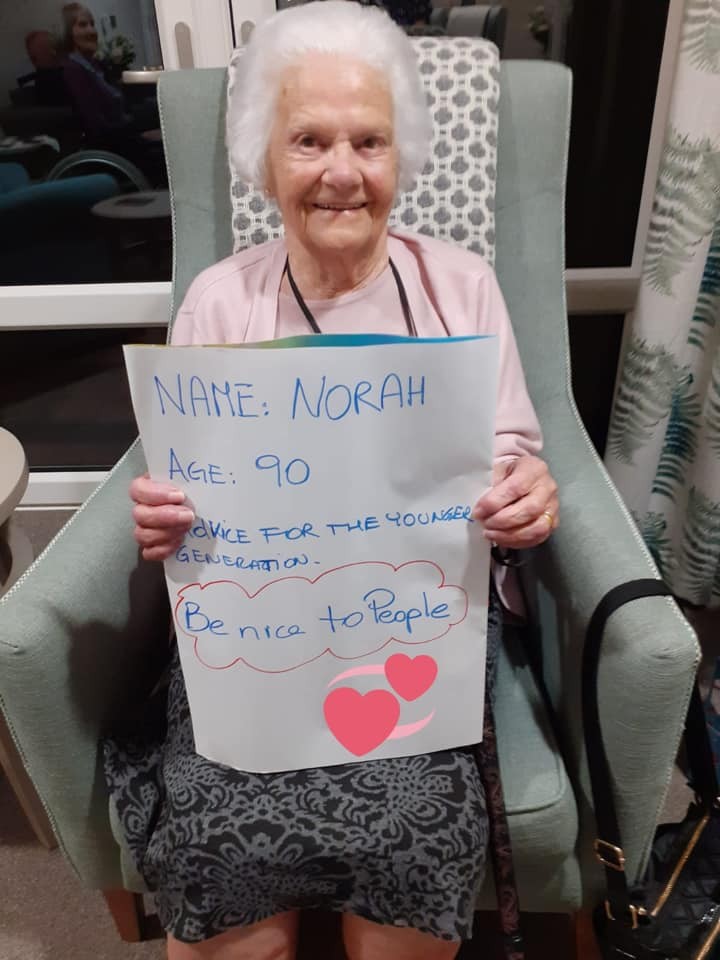 NAME: NORAH
AGE: 90
ADVICE FOR THE YOUNGER
GENERATION.
Be nice to People